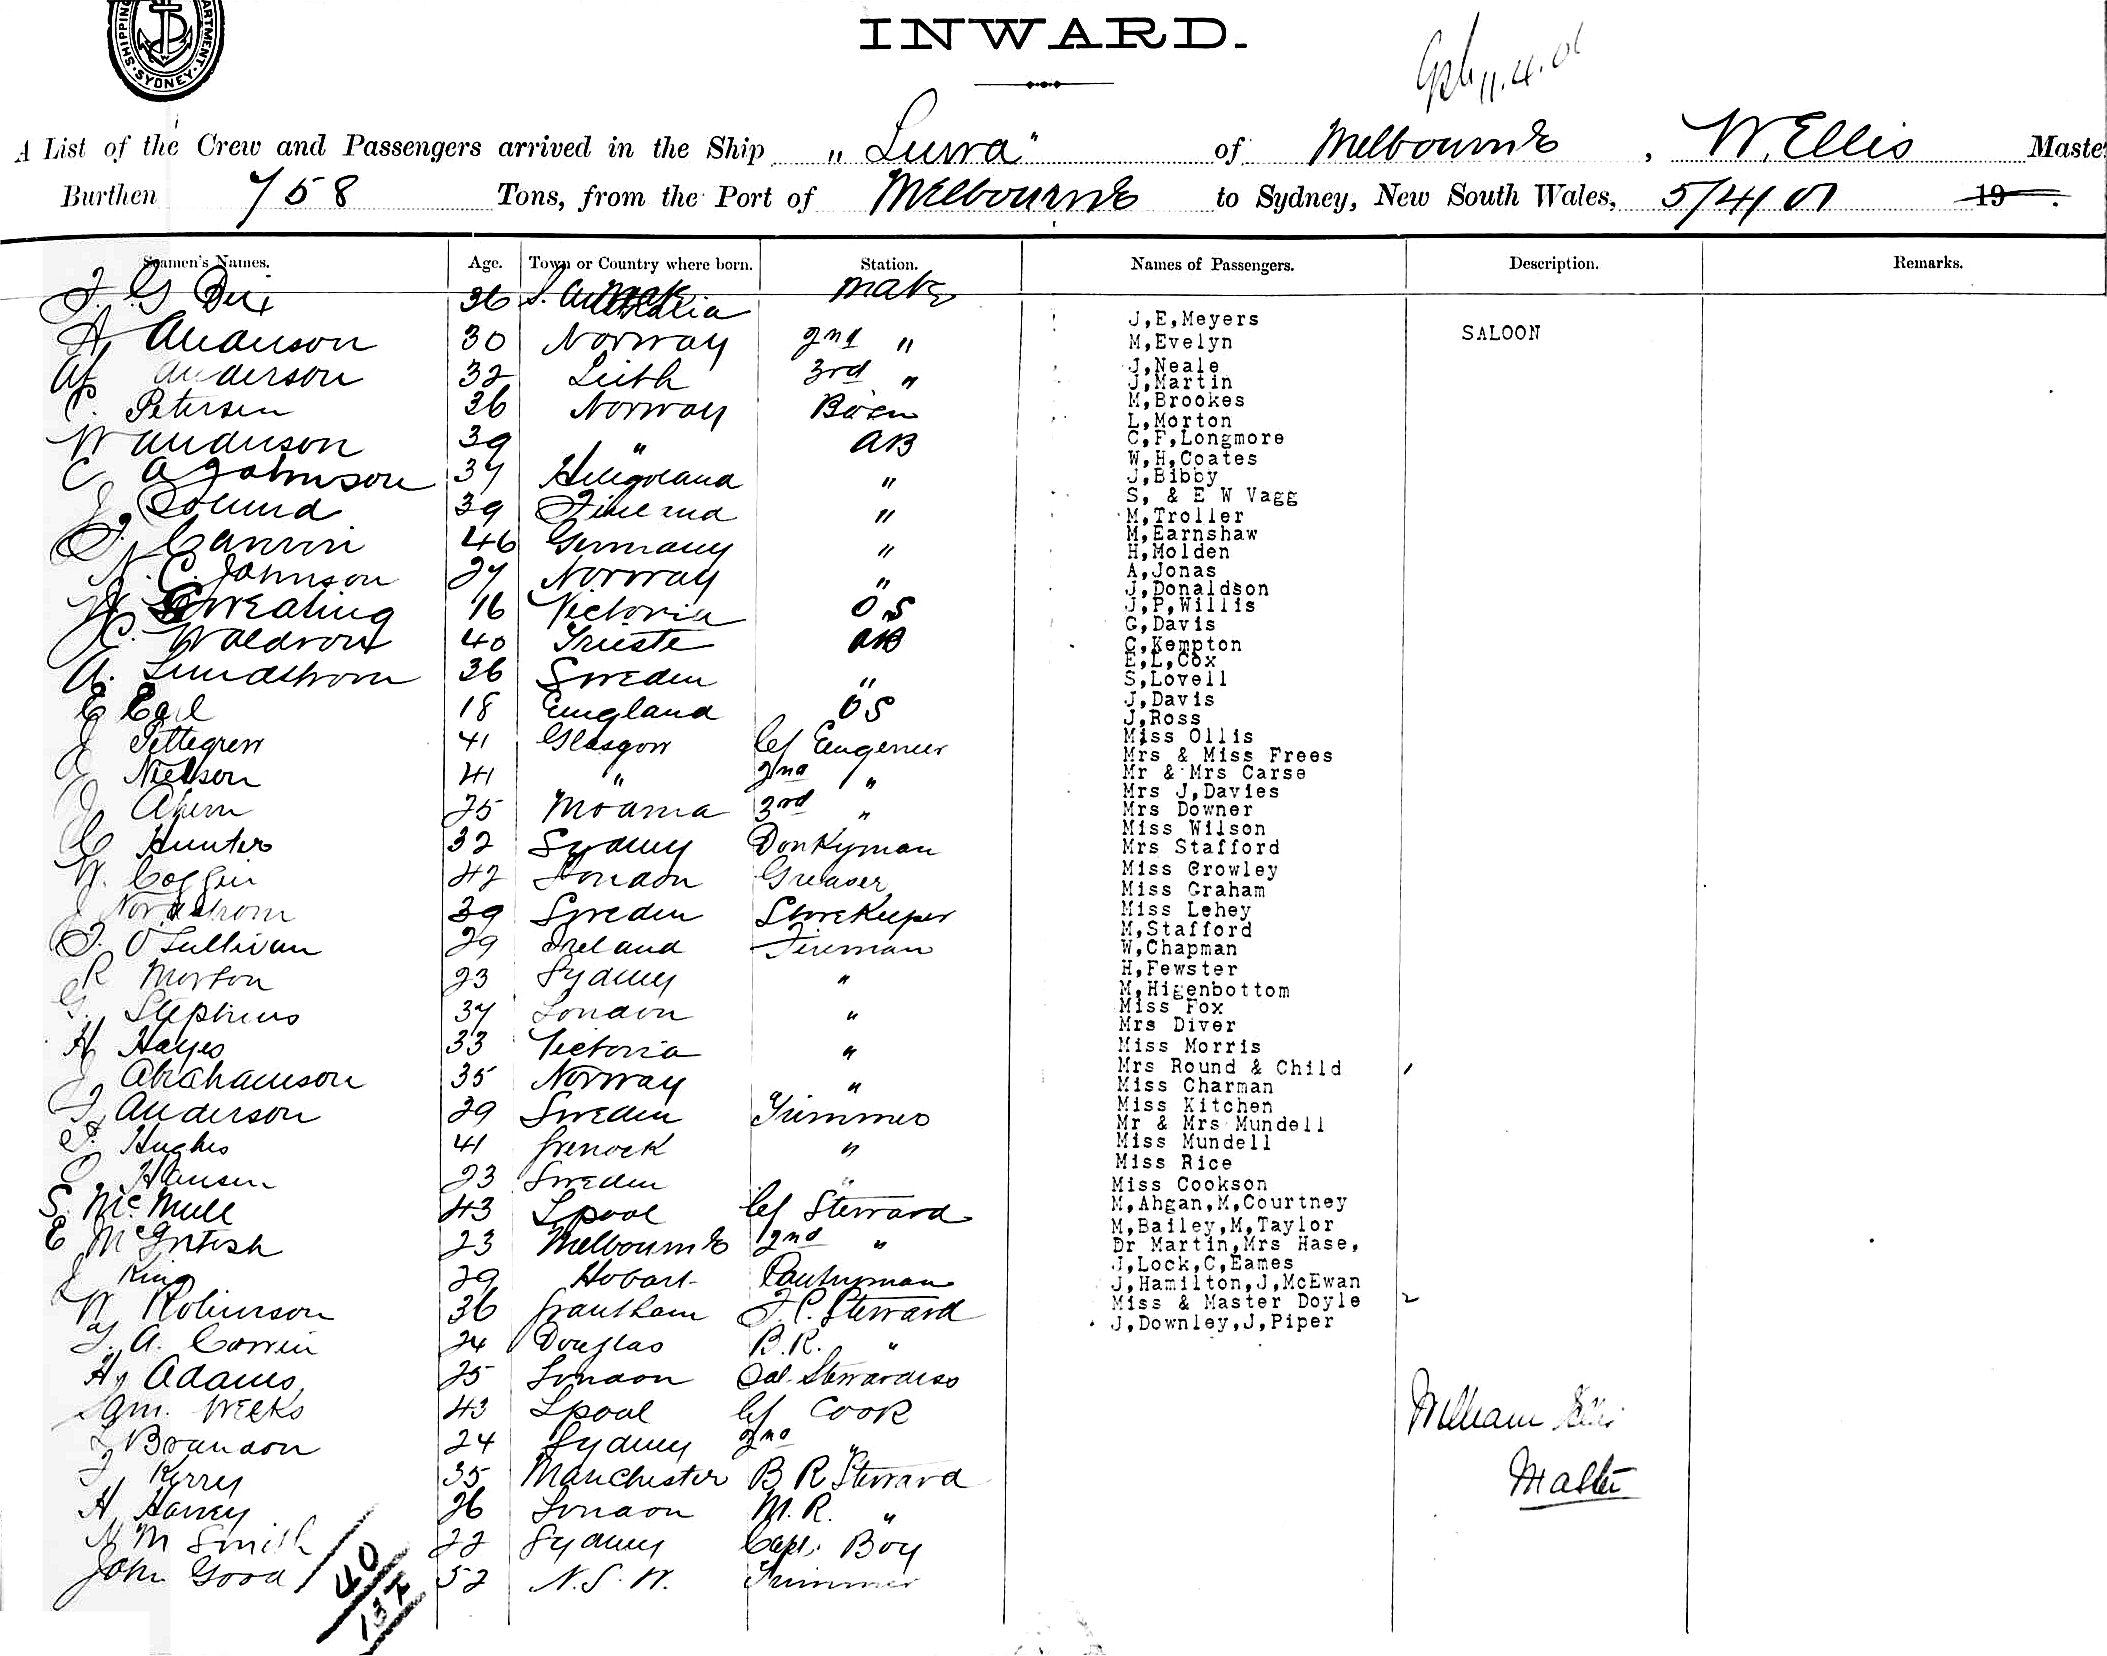 SHIPPING DEPARTMENT. SYDNEY.
INWARD.
11.4.01
A List of the Crew and Passengers arrived in the Ship " of Melbourne, W. Ellis Master
Burthen 758 Tons, from the Port of Melbourne to Sydney, New South Wales, 5/4/01 19 .
Seamen's Names. Age. Town or Country where born. Station. Names of Passengers. Description. Remarks.
36 S. Australia Mate
30 Norway 2nd "
Anderson 32 Leith 3rd "
Petersen 36 Norway Bosn
W Anderson 39 " AB
C A Johnson 37 Heligoland "
39 "
46 Germany "
N. C. Johnson 27 Norway "
16 Victoria OS
C. Waldron 40 Trieste AB
A. Lundstrom 36 Sweden "
E Earl 18 England OS
J Pettegrew 41 Glasgow Cf Engeneer
Nielson 41 " 2nd "
J Ahern 25 Moama 3rd "
Hunter 32 Sydney Donkyman
W. 42 London Greaser
Nordstrom 39 Sweden Storekeeper
O'Sullivan 29 Ireland Fireman
R Morton 23 Sydney "
G. Stephens 37 London "
H Hayes 33 Victoria "
J Abrahamson 35 Norway "
Anderson 29 Sweden Trimmer
Hughes 41 Grenock "
Hansen 23 Sweden "
S. McMull 43 Lpool Cf Steward
E McIntosh 23 Melbourne 2nd "
J King 29 Hobart Pantryman
W Robinson 36 Grantham F.C. Steward
A. 24 Douglas B.R. "
Hy Adams 25 London Sal. Stewardess
Weeks 43 Lpool Cf Cook
Brandon 24 Sydney 2nd "
Kerry 35 Manchester B R Steward
H Harvey 26 London M.R. "
M Smith 22 Sydney Capt. Boy
John Good 52 N.S.W. Trimmer
40
137
J,E,Meyers
SALOON
M,Evelyn
J,Neale
J,Martin
M,Brookes
L,Morton
C,F,Longmore
W,H,Coates
J,Bibby
S, & E W Vagg
M,Troller
M,Earnshaw
H,Molden
A,Jonas
J,Donaldson
J,P,Willis
G,Davis
C,Kempton
E,L,Cox
S,Lovell
J,Davis
J,Ross
Miss Ollis
Mrs & Miss Frees
Mr & Mrs Carse
Mrs J,Davies
Mrs Downer
Miss Wilson
Mrs Stafford
Miss Growley
Miss Graham
Miss Lehey
M,Stafford
W,Chapman
H,Fewster
M,Higenbottom
Miss Fox
Mrs Diver
Miss Morris
Mrs Round & Child
Miss Charman
Miss Kitchen
Mr & Mrs Mundell
Miss Mundell
Miss Rice
Miss Cookson
M,Ahgan,M,Courtney
M,Bailey,M,Taylor
Dr Martin,Mrs Hase,
J,Lock,C,Eames
J,Hamilton,J,McEwan
Miss & Master Doyle
J,Downley,J,Piper
William Ellis
Master